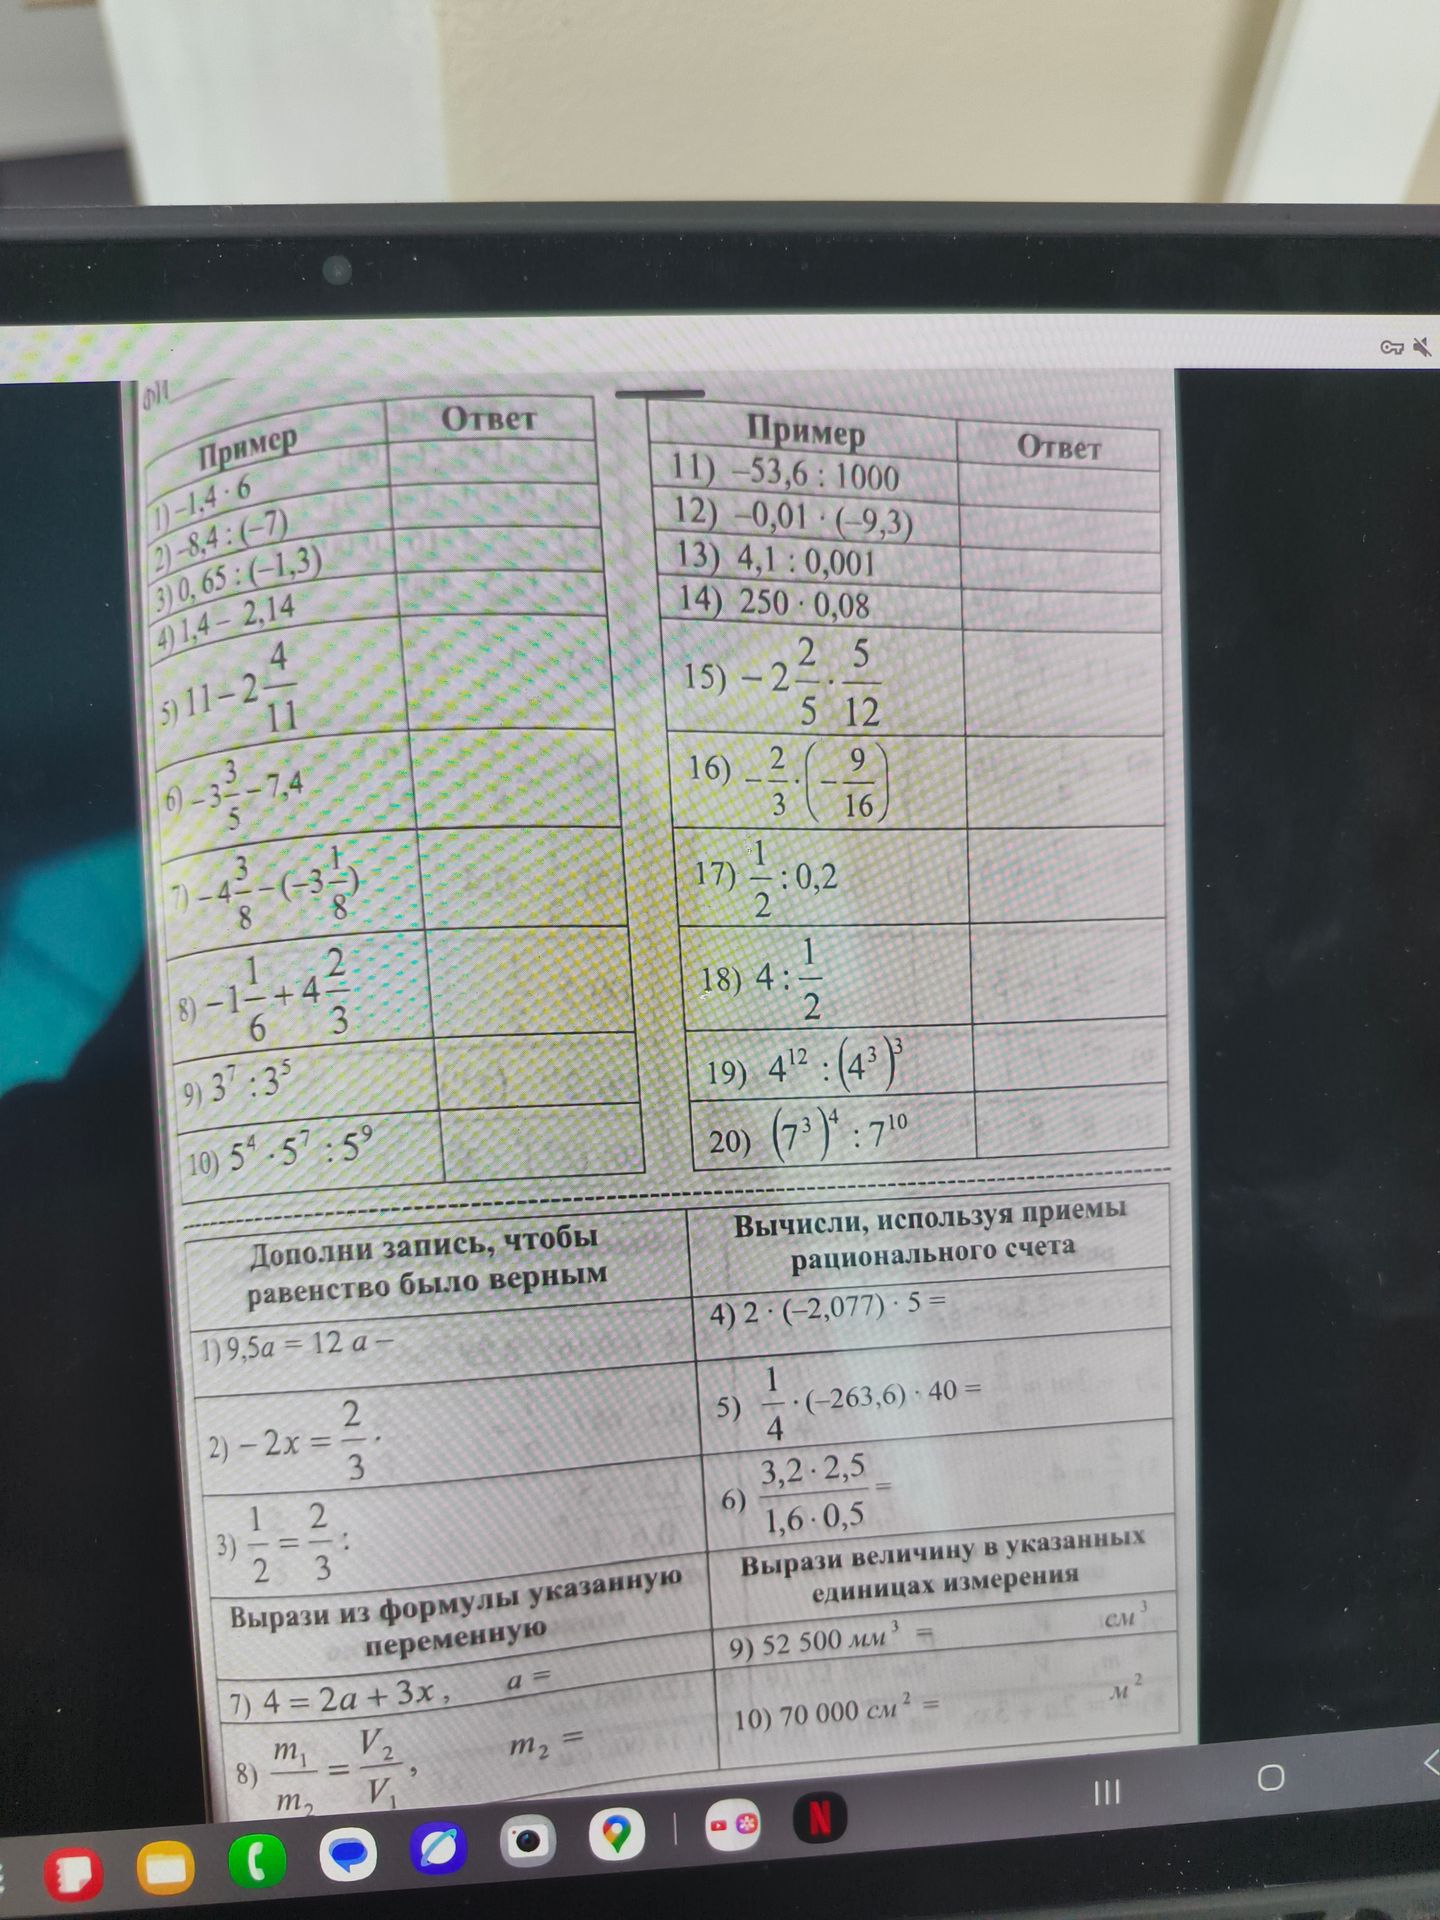 Пример Ответ
1) –1,4 · 6
2) –8,4 : (–7)
3) 0, 65 : (–1,3)
4) 1,4 – 2,14
5) 11 – 2 4/11
6) – 3 3/5 – 7,4
7) – 4 3/8 – (–3 1/8)
8) – 1 1/6 + 4 2/3
9) 3⁷ : 3⁵
10) 5⁴ · 5⁷ : 5⁹
Пример Ответ
11) –53,6 : 1000
12) –0,01 · (–9,3)
13) 4,1 : 0,001
14) 250 · 0,08
15) – 2 2/5 · 5/12
16) – 2/3 · (– 9/16)
17) 1/2 : 0,2
18) 4 : 1/2
19) 4¹² : (4³)³
20) (7³)⁴ : 7¹⁰
Дополни запись, чтобы
равенство было верным
1) 9,5a = 12 a –
2) – 2x = 2/3 ·
3) 1/2 = 2/3 :
Вычисли, используя приемы
рационального счета
4) 2 · (–2,077) · 5 =
5) 1/4 · (–263,6) · 40 =
6) 3,2 · 2,5 / 1,6 · 0,5 =
Вырази из формулы указанную
переменную
7) 4 = 2a + 3x , a =
8) m₁/m₂ = V₂/V₁ , m₂ =
Вырази величину в указанных
единицах измерения
9) 52 500 мм³ = см³
10) 70 000 см² = м²
N